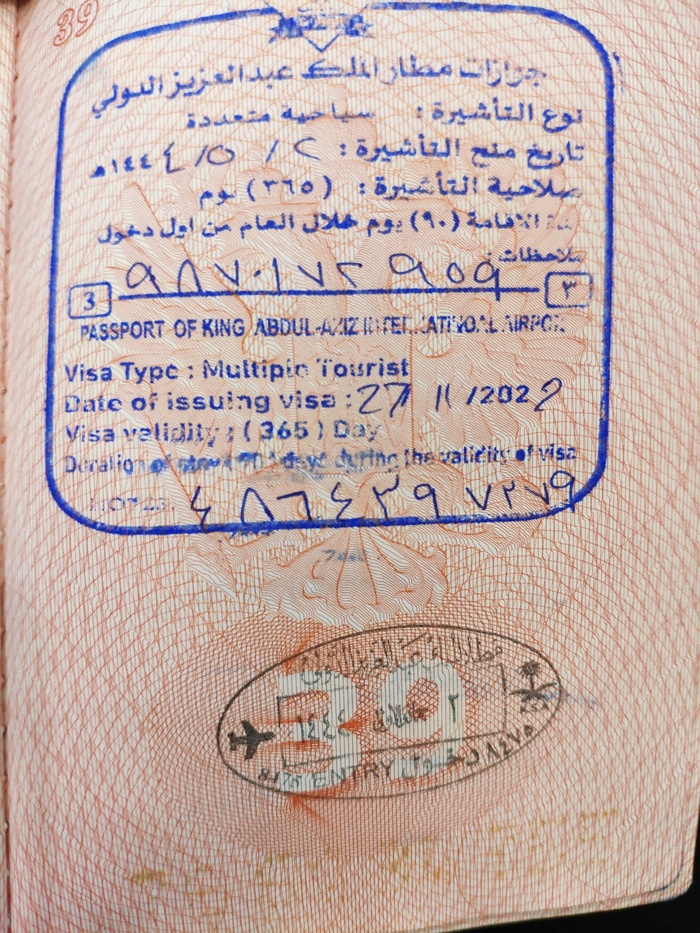 39
جوازات مطار الملك عبدالعزيز الدولي
نوع التأشيرة : سياحية متعددة
تاريخ منح التأشيرة : ٢ / ٥/ ١٤٤٤هـ
صلاحية التأشيرة : (٣٦٥) يوم
مدة الاقامة (٩٠) يوم خلال العام من اول دخول
ملاحظات :
٩٨٧٠١٧٢٩٥٩
3 ٣
PASSPORT OF KING ABDUL-AZIZ INTERNATIONAL AIRPORT
Visa Type : Multiple Tourist
Date of issuing visa : 27/ 11 /2022
Visa validity : ( 365 ) Day
Duration of stay ( 90 ) days during the validity of visa
NOTES:
٤٨٦٤٣٩٧٢٧٩
مطار الملك عبدالعزيز الدولي
٢ ١٤٤٤
8475 ENTRY دخول ٨٤٧٥
39